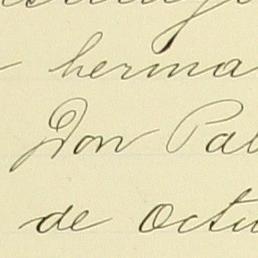 herma
Don Pal
de Octu